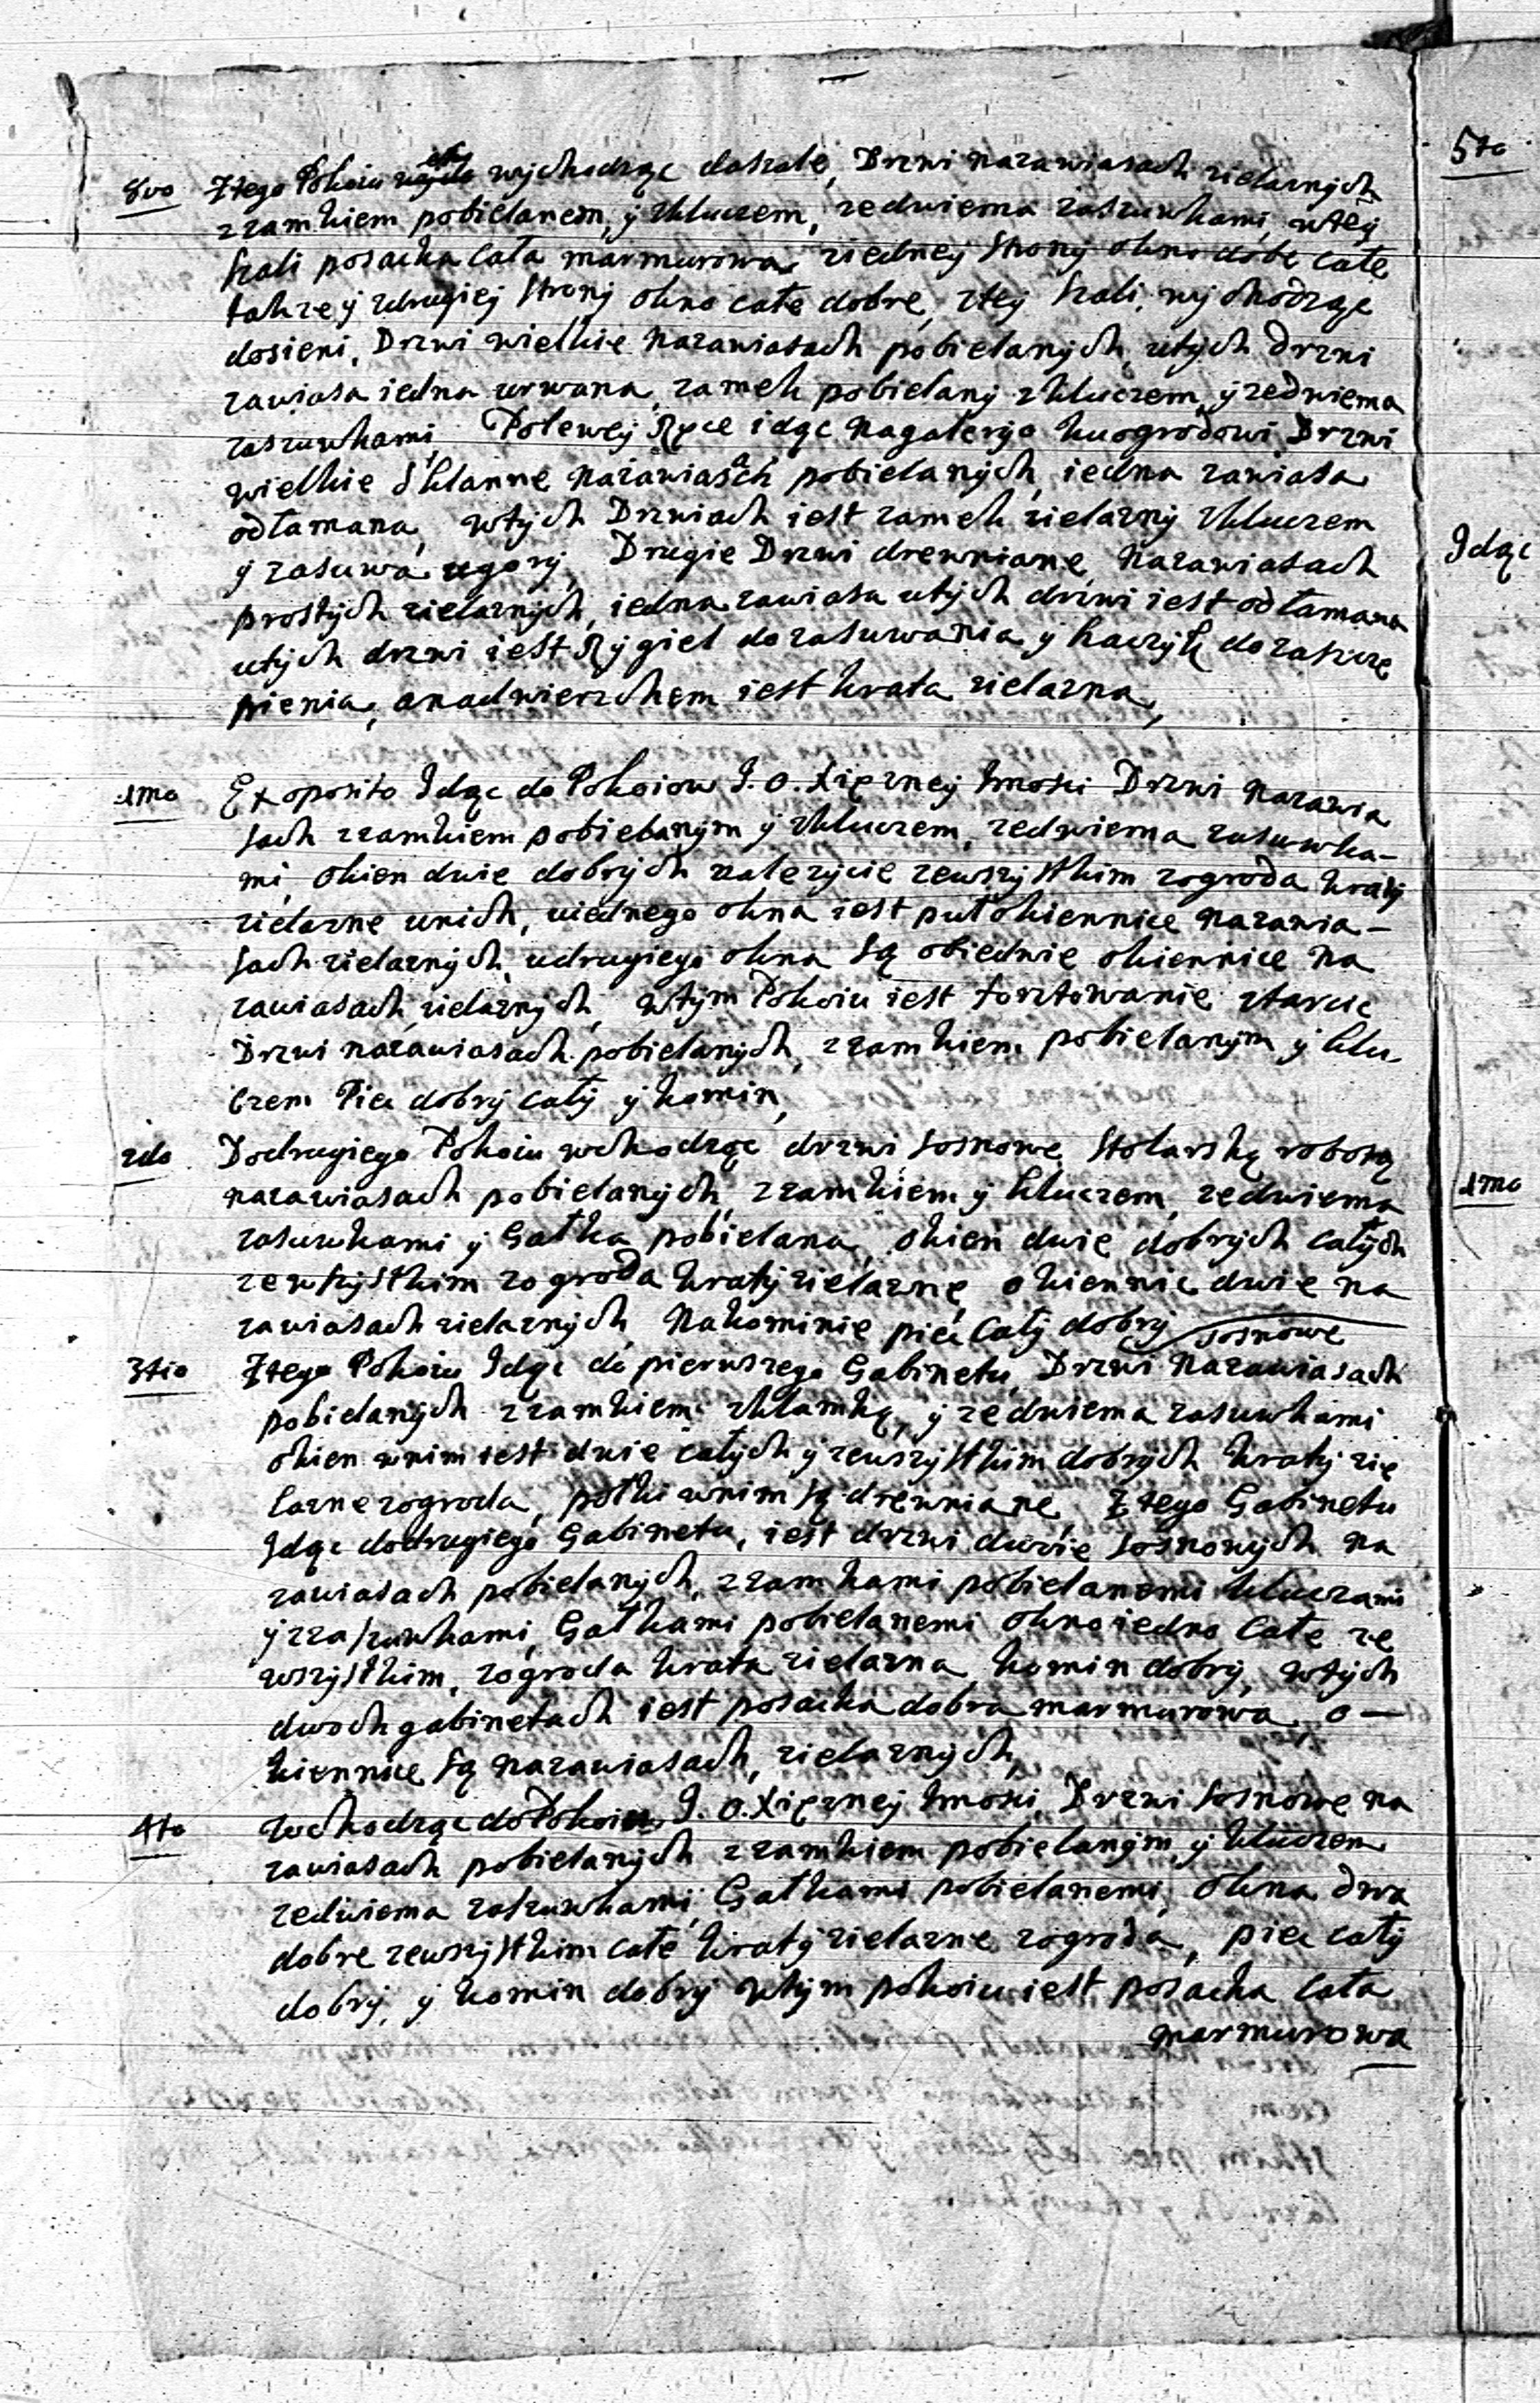 8vo Ztego Pokoiu wychodząc dosale, Drzwi nazawiasach zielaznych
zzamkiem pobielanem, y zkluczem, zedwiema zaszuwkami, wtey
szali posacka cała marmurowa, ziedney strony okno dobe całe
takze y zdrugiej strony okno całe dobre, ztey szali, wychodząc
dosieni, Drzwi wielkie nazawiasach pobielanych, utych drzwi
zawiasa iedna urwana, zamek pobielany zkluczem, y zedwiema
zaszuwkami, Polewej Ręce idąc nagaleryo kuogrodowi Drzwi
wielkie szklanne nazawiasach pobielanych, iedna zawiasa
odłamana, wtych Drzwiach iest zamek zielazny zkluczem
y zasuwa ugory, Drugie Drzwi drewniane, nazawiasach
prostych zielaznych, iedna zawiasa utych drzwi iest odłamana
utych drzwi iest Rygiel dozasuwania y haczyk dozascze
pienia, anadwierzchem iest krata zielazna,
1mo Exoposito Idąc do Pokoiow J. O. Xięzney Jmosci Drzwi nazawia
sach zzamkiem pobielanym y zkluczem, zedwiema zasuwka-
mi, okien dwie dobrych nalezycie zewszystkim zogroda kraty
zielazne unich, uiednego okna iest puł okiennice nazawia-
sach zielaznych, udrugiego okna są obiedwie okiennice na
zawiasach zielaznych, wtym Pokoiu iest forztowanie ztarcic
Drzwi nazawiasach pobielanych, zzamkiem pobielanym y klu-
czem Piec dobry cały y komin,
2do Dodrugiego Pokoiu wchodząc drzwi sosnowe, stolarską robotą
nazawiasach pobielanych, zzamkiem y kluczem, zedwiema
zasuwkami y Gałka pobielana, okien dwie dobrych całych
zewszystkim zogroda kraty zielazne, okiennic dwie na
zawiasach zielaznych, nakominie piec cały dobry
3tio Ztego Pokoiu Idąc do pierwszego Gabinetu, Drzwi sosnowe nazawiasach
pobielanych zzamkiem zklamką, y zedwiema zasuwkami
okien wnim iest dwie całych y zewszystkim dobrych kraty zie
lazne zogroda, połki wnim są drewniane, Ztego Gabinetu
Idąc dodrugiego Gabinetu, iest drzwi dwoie sosnowych na
zawiasach pobielanych, zzamkami pobielanemi kluczami
y zzaszuwkami, Gałkami pobielanemi okno iedno całe ze
wszystkim, zogroda krata zielazna, komin dobry, wtych
dwoch gabinetach iest posacka dobra marmurowa, o-
kiennice są nazawiasach, zielaznych,
4to Wchodząc do Pokoiu J. O. Xięzney Jmosci, Drzwi sosnowe na
zawiasach pobielanych zzamkiem pobielanym, y kluczem
zedwiema zaszuwkami, Gałkami pobielanemi, okna dwa
dobre zewszystkim całe kraty zielazne zogroda, piec cały
dobry, y komin dobry wtym pokoiu iest posacka cała
marmurowa
5to
Idąc
1mo